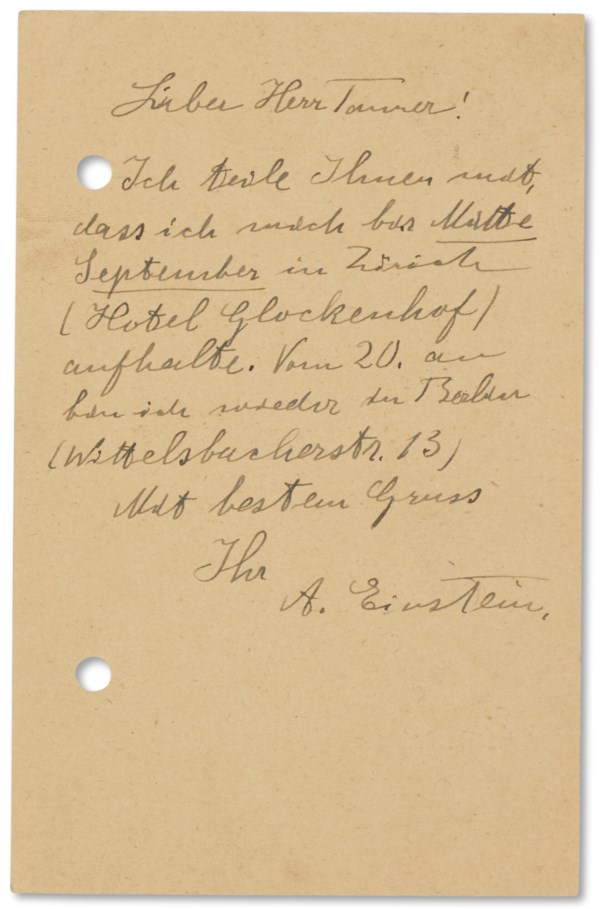 Lieber Herr Tanner!
Ich teile Ihnen mit,
dass ich mich bis Mitte
September in Zürich
(Hotel Glockenhof)
aufhalte. Vom 20. an
bin ich wieder in Berlin
(Wittelsbacherstr. 13)
Mit bestem Gruss
Ihr
A. Einstein.